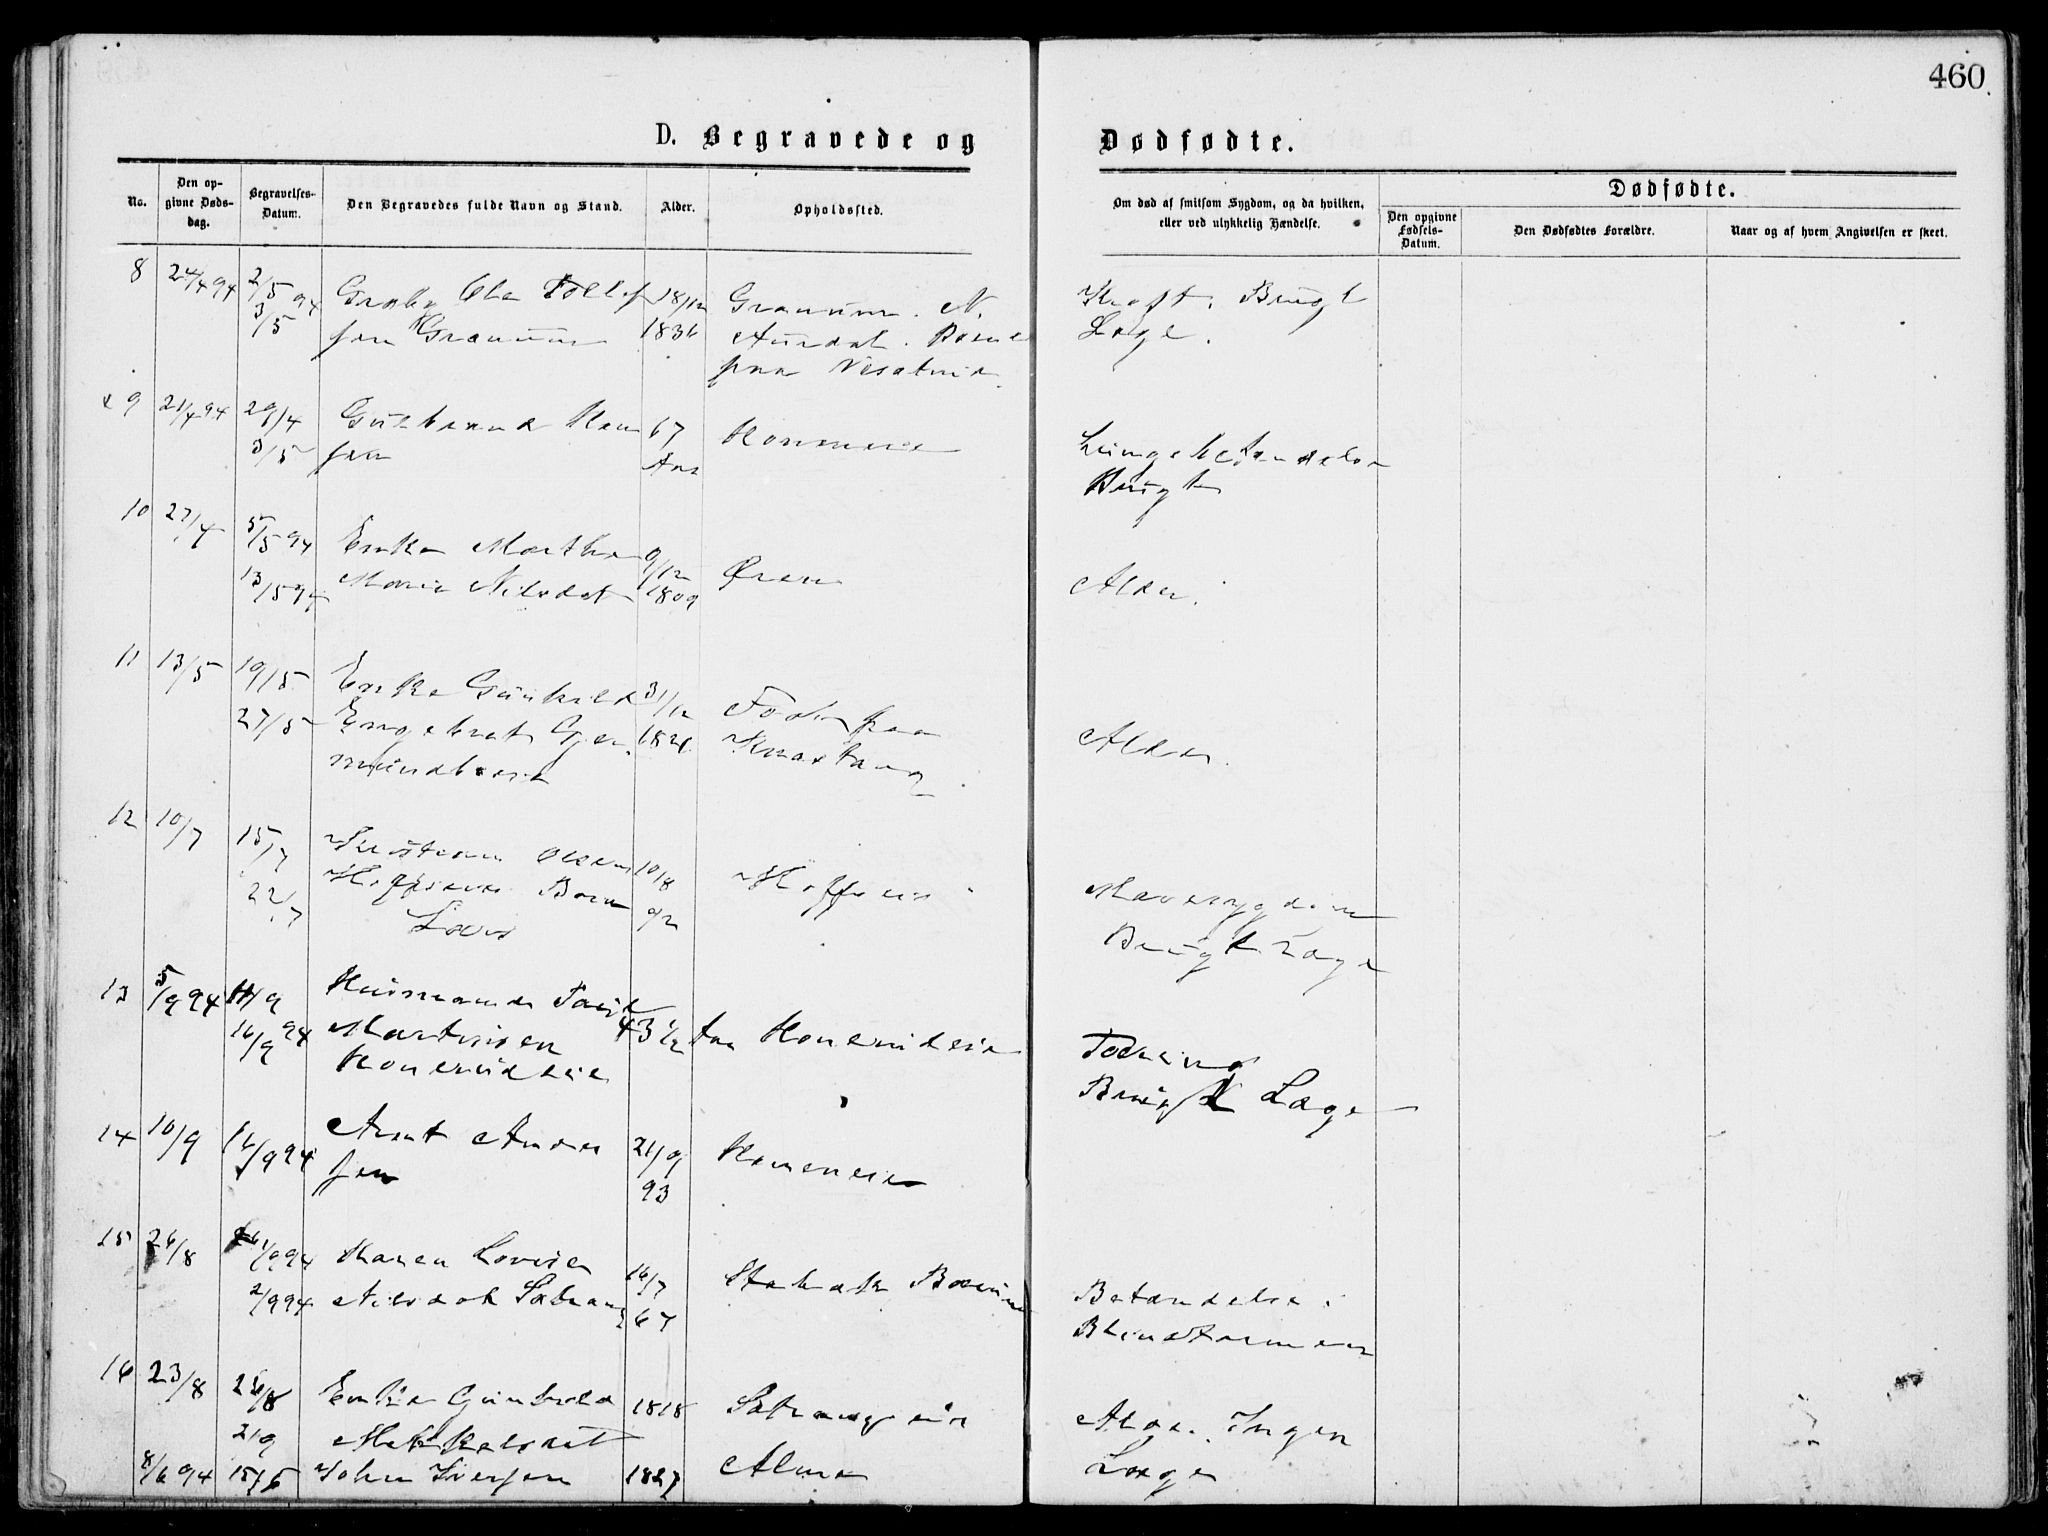 460
D. Begravede og Dødfødte.
No.
Den opgivne Døds-dag.
Begravelses-Datum.
Den Begravedes fulde Navn og Stand.
Alder.
Opholdssted.
Om død af smitsom Sygdom, og da hvilken, eller ved ulykkelig Hændelse.
Dødfødte.
Den opgivne Fødsels-Datum.
Den Dødfødtes Forældre.
Naar og af hvem Angivelsen er skeet.
8 24/4 94 2/5 94 Ole Tollef 18/12 Granum. N. Kræft. Brugt
3/5 sen Granum 1836 Aurdal. Læge.
paa
9 21/4 94 29/4 Gulbrand Han 67
3/5 sen Aar Lungebetændelse
Brugt
10 27/4 5/5 94 Enke Marthe 9/12
13/5 94 Marie Nilsdat 1809 Øren Alder.
11 13/5 19/5 Enke Gunhild 31/12 Foder paa
27/5 Engebret Knæstang Alder.
12 10/7 15/7 Kristian Olsen 10/8
22/7 Barn 92 Mavesygdom
Lovis Brugt Læge
13 5/9 94 11/9 Husmand
16/9 94 Martinsen 43 1/2 Aar Honerudeie Tæring
Honerudeie Brugt Læge
14 10/9 16/9 94 Arnt Ander 21/9
sen 93
15 26/8 Karen Lovise 16/7 Stabæk Bærum Betændelse i
2/9 94 Nilsdat Sætrang 67 Blindtarmen
16 23/8 26/8 Enke Gunhild 1818 Sætrangeie Alder. Ingen
2/9 Mikkelsdat Læge
8/6 94 15/6 John Iversen 1827 Alme